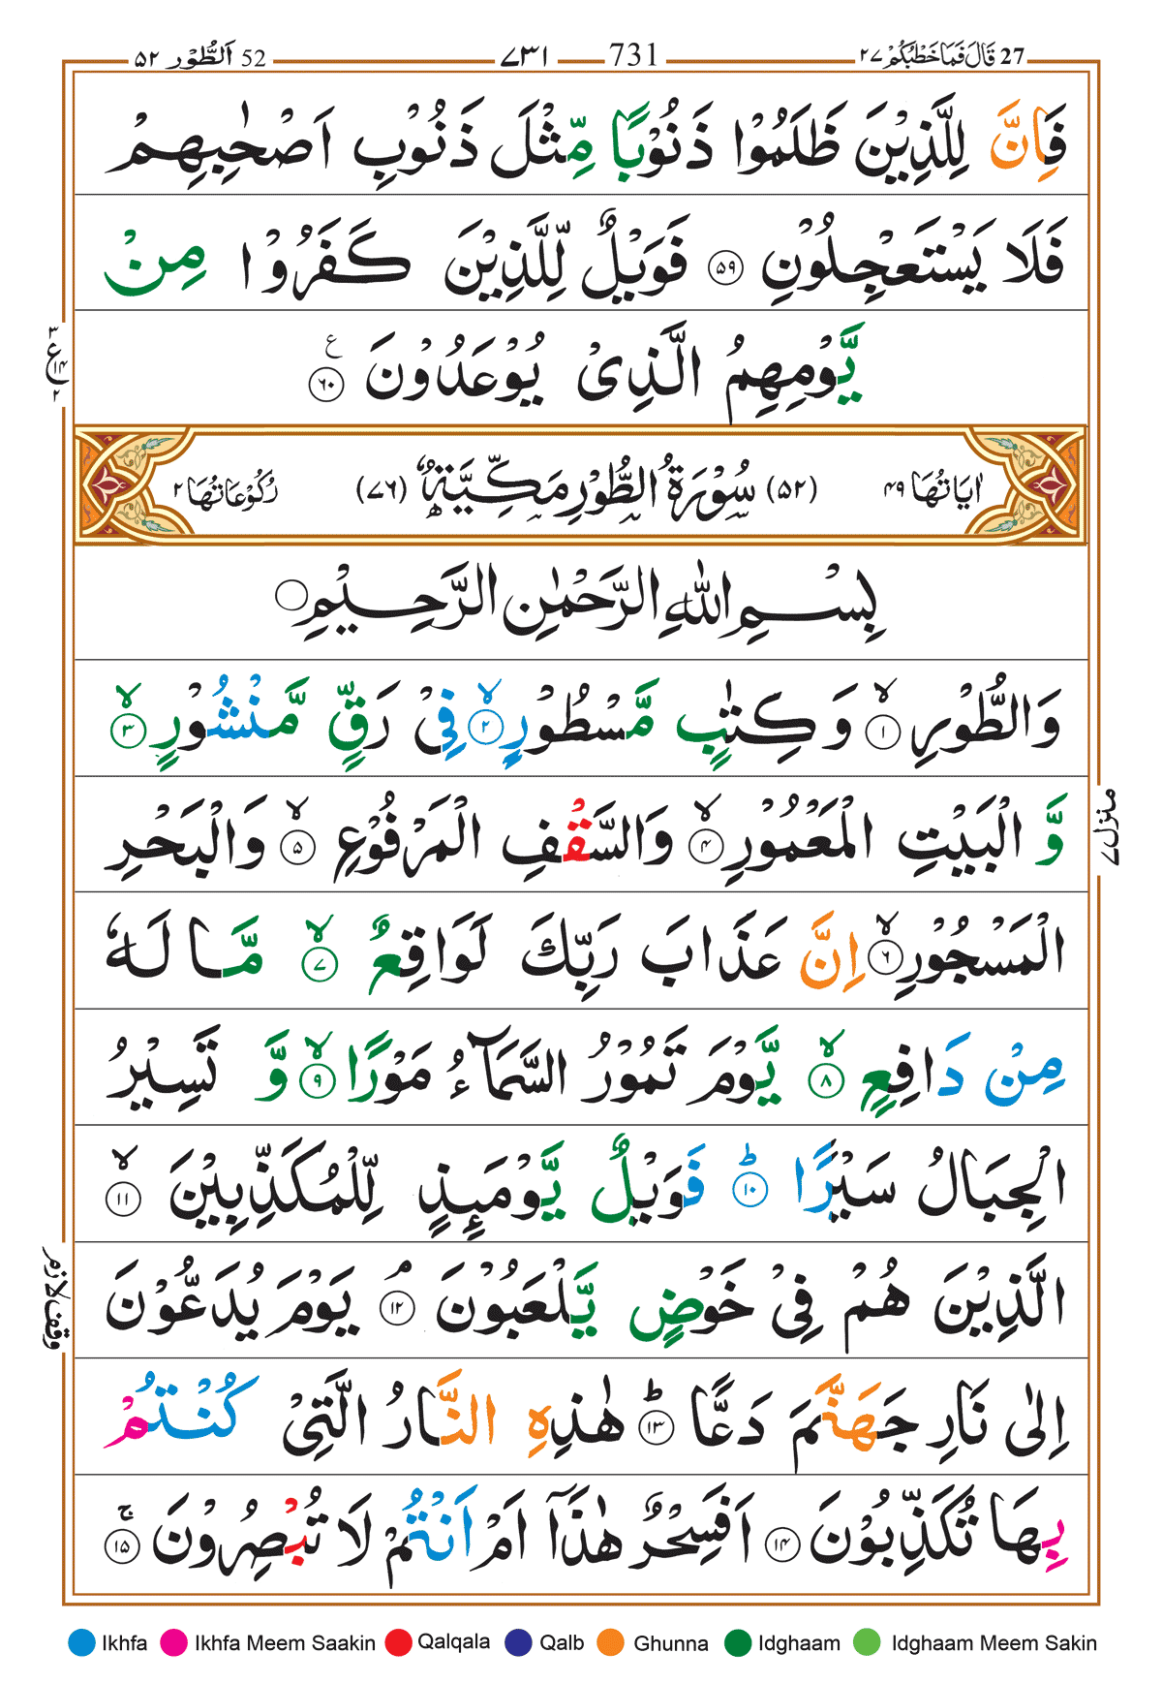 27 قَالَ فَمَا خَطْبُكُمْ ٢٧ 731 ٧٣١ 52 اَلطُّوْر ٥٢
فَاِنَّ لِلَّذِيْنَ ظَلَمُوْا ذَنُوْبًا مِّثْلَ ذَنُوْبِ اَصْحٰبِهِمْ
فَلَا يَسْتَعْجِلُوْنِ ٥٩ فَوَيْلٌ لِّلَّذِيْنَ كَفَرُوْا مِنْ
يَّوْمِهِمُ الَّذِىْ يُوْعَدُوْنَ ٦٠ ع
٣ ع ١٤ ٢
اٰيَاتُهَا ٤٩ (٥٢) سُوْرَةُ الطُّوْرِ مَكِّيَّةٌ (٧٦) رُكُوْعَاتُهَا ٢
بِسْمِ اللّٰهِ الرَّحْمٰنِ الرَّحِيْمِ
وَالطُّوْرِ ١ۙ وَكِتٰبٍ مَّسْطُوْرٍ ٢ۙ فِىْ رَقٍّ مَّنْشُوْرٍ ٣ۙ
وَّ الْبَيْتِ الْمَعْمُوْرِ ٤ۙ وَالسَّقْفِ الْمَرْفُوْعِ ٥ۙ وَالْبَحْرِ
منزل ٧
الْمَسْجُوْرِ ٦ۙ اِنَّ عَذَابَ رَبِّكَ لَوَاقِعٌ ٧ۙ مَّا لَهٗ
مِنْ دَافِعٍ ٨ۙ يَّوْمَ تَمُوْرُ السَّمَآءُ مَوْرًا ٩ۙ وَّ تَسِيْرُ
الْجِبَالُ سَيْرًا ١٠ؕ فَوَيْلٌ يَّوْمَئِذٍ لِّلْمُكَذِّبِيْنَ ١١ۙ
الَّذِيْنَ هُمْ فِىْ خَوْضٍ يَّلْعَبُوْنَ ١٢ۘ يَوْمَ يُدَعُّوْنَ
وقف لازم
اِلٰى نَارِ جَهَنَّمَ دَعًّا ١٣ؕ هٰذِهِ النَّارُ الَّتِىْ كُنْتُمْ
بِهَا تُكَذِّبُوْنَ ١٤ اَفَسِحْرٌ هٰذَآ اَمْ اَنْتُمْ لَا تُبْصِرُوْنَ ١٥ۚ
Ikhfa Ikhfa Meem Saakin Qalqala Qalb Ghunna Idghaam Idghaam Meem Sakin